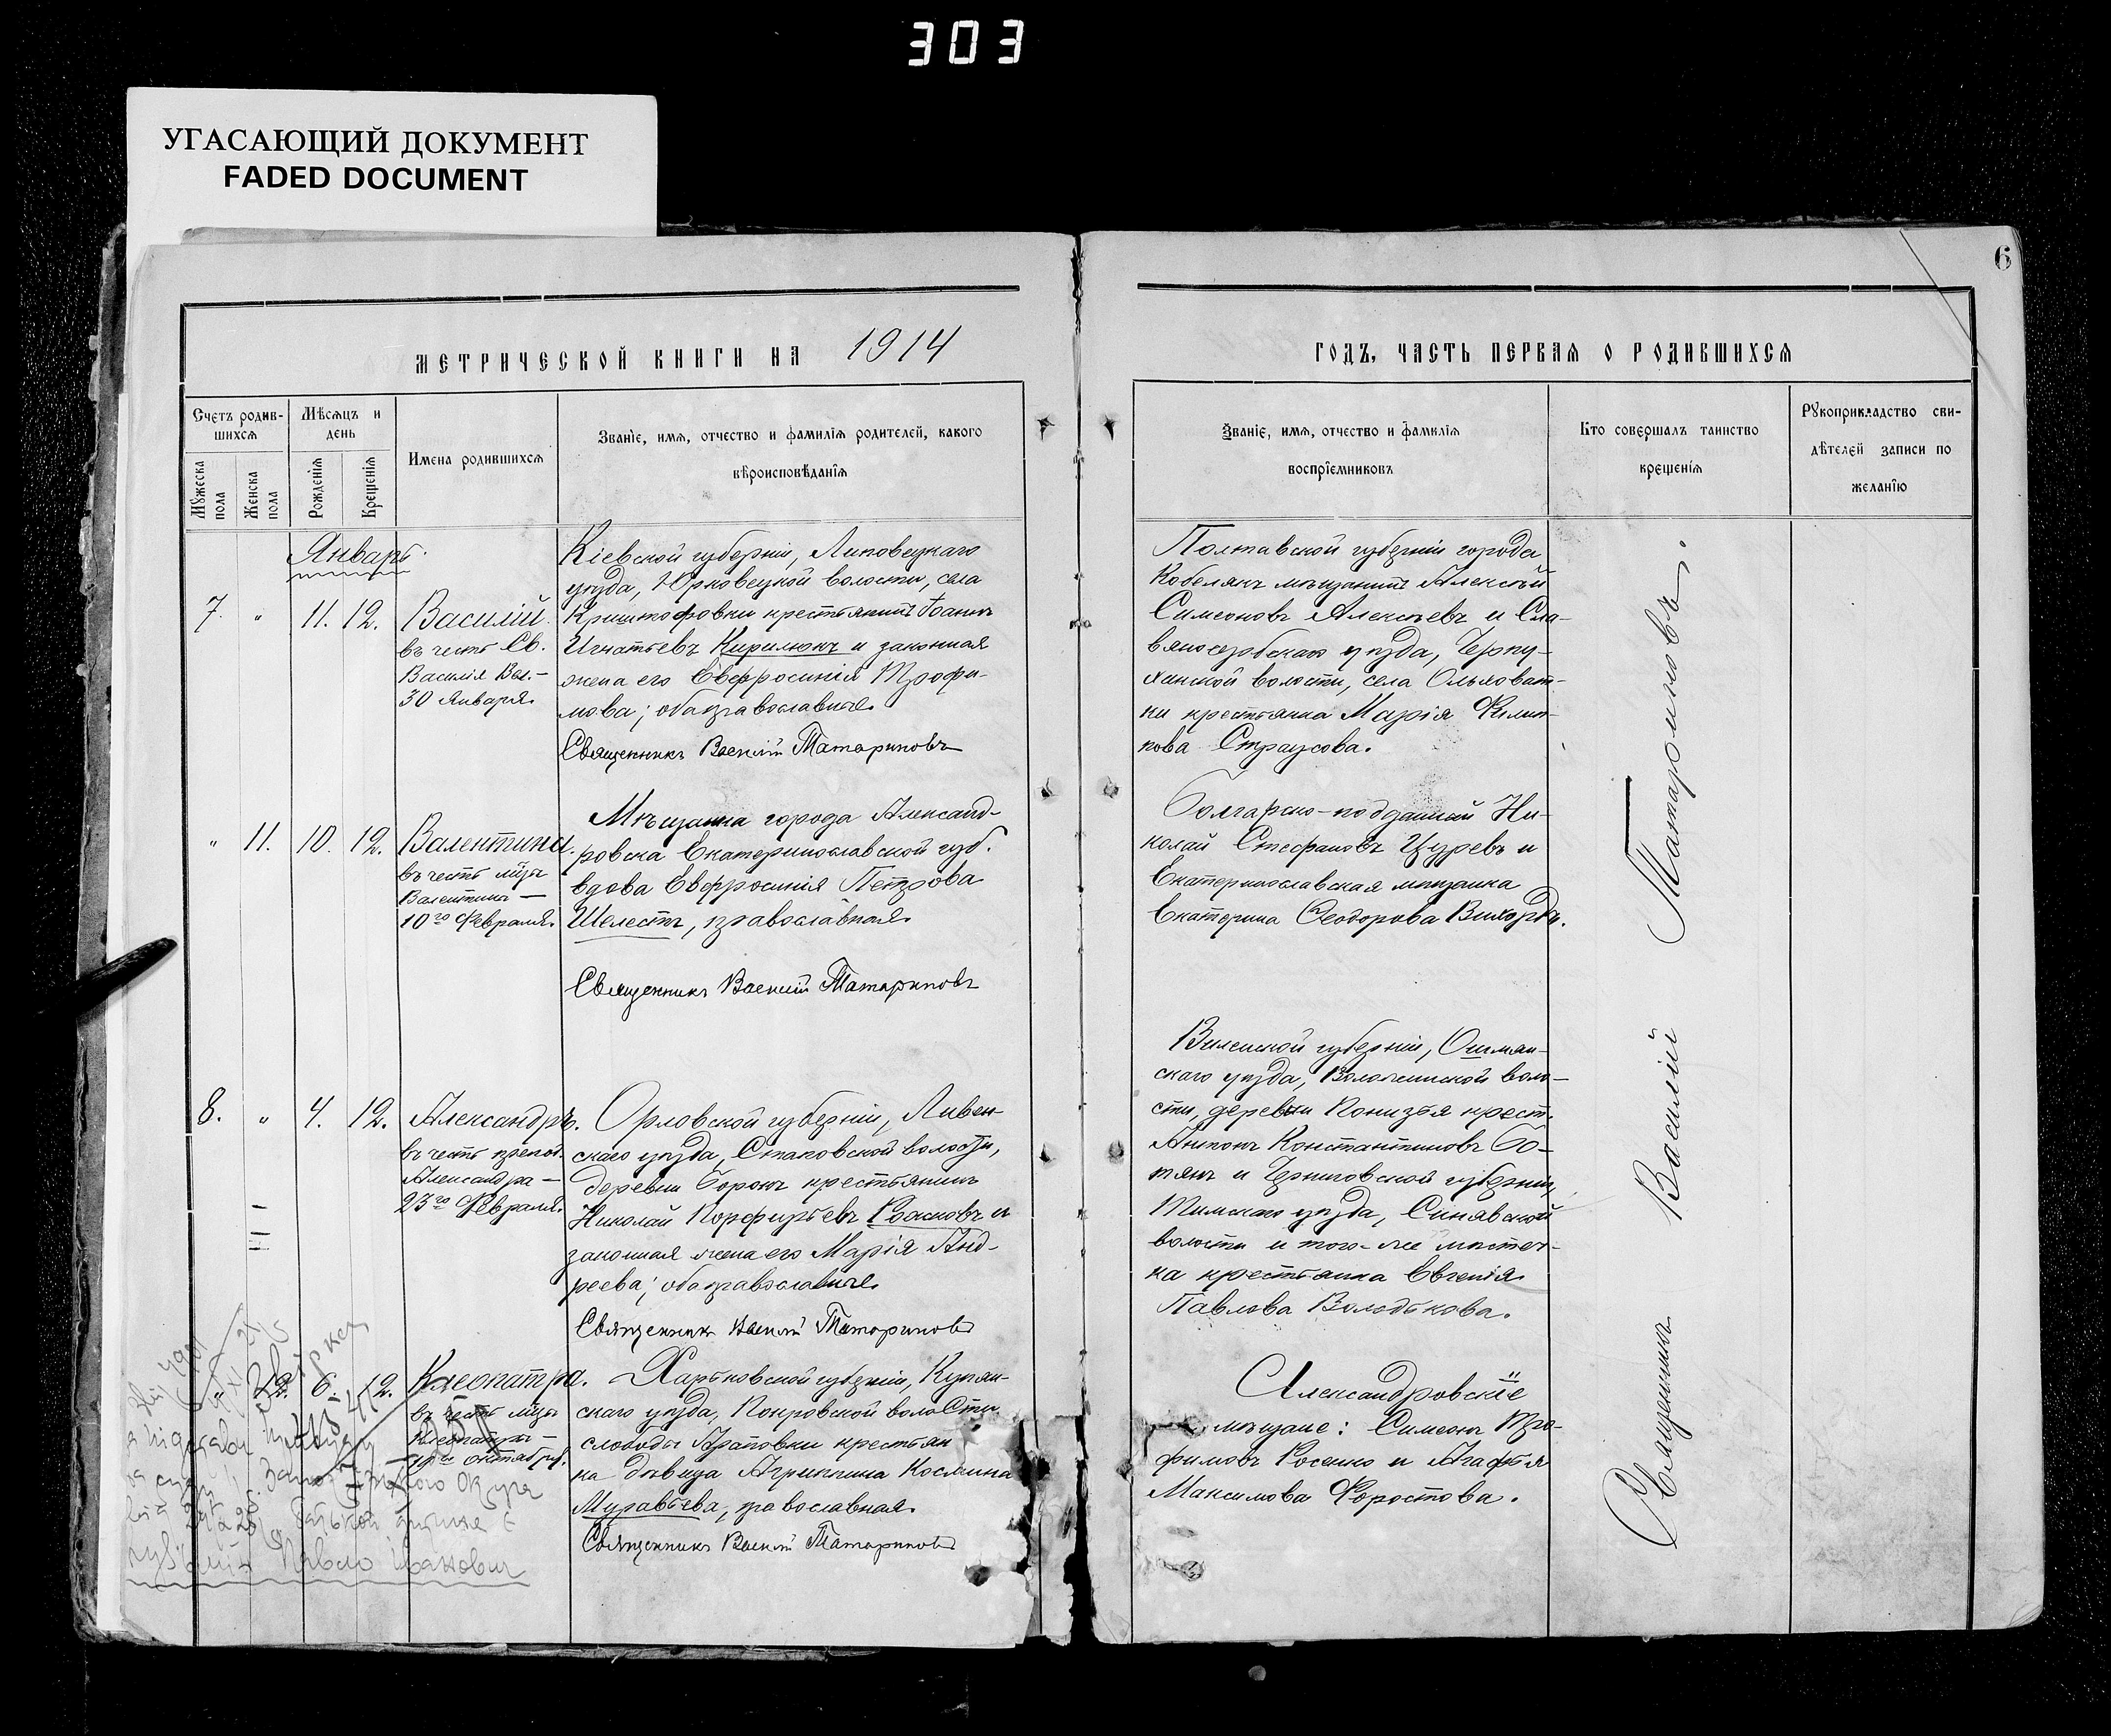 303
УГАСАЮЩИЙ ДОКУМЕНТ
FADED DOCUMENT
6
МЕТРИЧЕСКОЙ КНИГИ НА 1914
ГОДЪ, ЧАСТЬ ПЕРВАЯ О РОДИВШИХСЯ
Счетъ родив-
шихся
Мужеска пола
Женска пола
Мѣсяцъ и
день
Рожденія
Крещенія
Имена родившихся
Званіе, имя, отчество и фамилія родителей, какого
вѣроисповѣданія
Званіе, имя, отчество и фамилія
воспріемниковъ
Кто совершалъ таинство
крещенія
Рукоприкладство сви-
дѣтелей записи по
желанію
Январь.
7. " 11. 12.
Василій
въ честь Св.
Василія Вел.-
30 января.
Кіевской губерніи, Липовецкаго
уѣзда, Юрковецкой волости, села
Криштофовки крестьянинъ Іоаннъ
Игнатьевъ Кирилюкъ и законная
жена его Евфросинія Трофи-
мова; оба православные.
Священникъ Василій Татариновъ
Полтавской губерніи города
Кобелякъ мѣщанинъ Алексѣй
Симеоновъ Алексѣевъ и Сла-
вяносербскаго уѣзда, Черну-
хинской волости, села Ольховат-
ки крестьянка Марія Филип-
пова Страусова.
" 11. 10. 12.
Валентина.
въ честь мцы
Валентины —
10го Февраля.
Мѣщанка города Александ-
ровска Екатеринославской губ.
вдова Евфросинія Петрова
Шелестъ, православная.
Священникъ Василій Татариновъ
Болгарско-подданный Ни-
колай Стефановъ Цуревъ и
Екатеринославская мѣщанка
Екатерина Ѳеодорова Вихорь.
8. " 4. 12.
Александръ.
въ честь препод.
Александра —
23го Февраля.
Орловской губерніи, Ливен-
скаго уѣзда, Стаковской волости,
деревни Борокъ крестьянинъ
Николай Порфирьевъ и
законная жена его Марія Анд-
реева; оба православные.
Священникъ Василій Татариновъ
Виленской губерніи, Ошмян-
скаго уѣзда, Воложинской воло-
сти, деревни Понизья крест.
Антонъ Константиновъ Бо-
тянъ и Черниговской губерніи,
уѣзда, Синявской
волости и того-же мѣстеч-
ка крестьянка Евгенія
Павлова Володькова.
" 12. 6. 12.
Клеопатра.
въ честь мцы
Клеопатры —
Октября.
Харьковской губерніи, Купян-
скаго уѣзда, Покровской волости
слободы Араповки крестьян
ка дѣвица Агриппина Космина
Муравьева, православная.
Священникъ Василій Татариновъ
Александровскіе
мѣщане: Симеонъ Тро-
фимовъ Косенко и Агафья
Максимова Форостова.
Священникъ Василій Татариновъ.